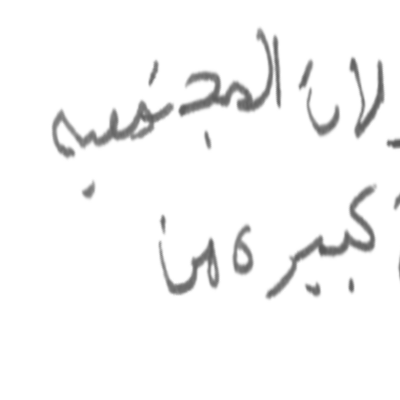 لان المجتمعيه
كبيره من